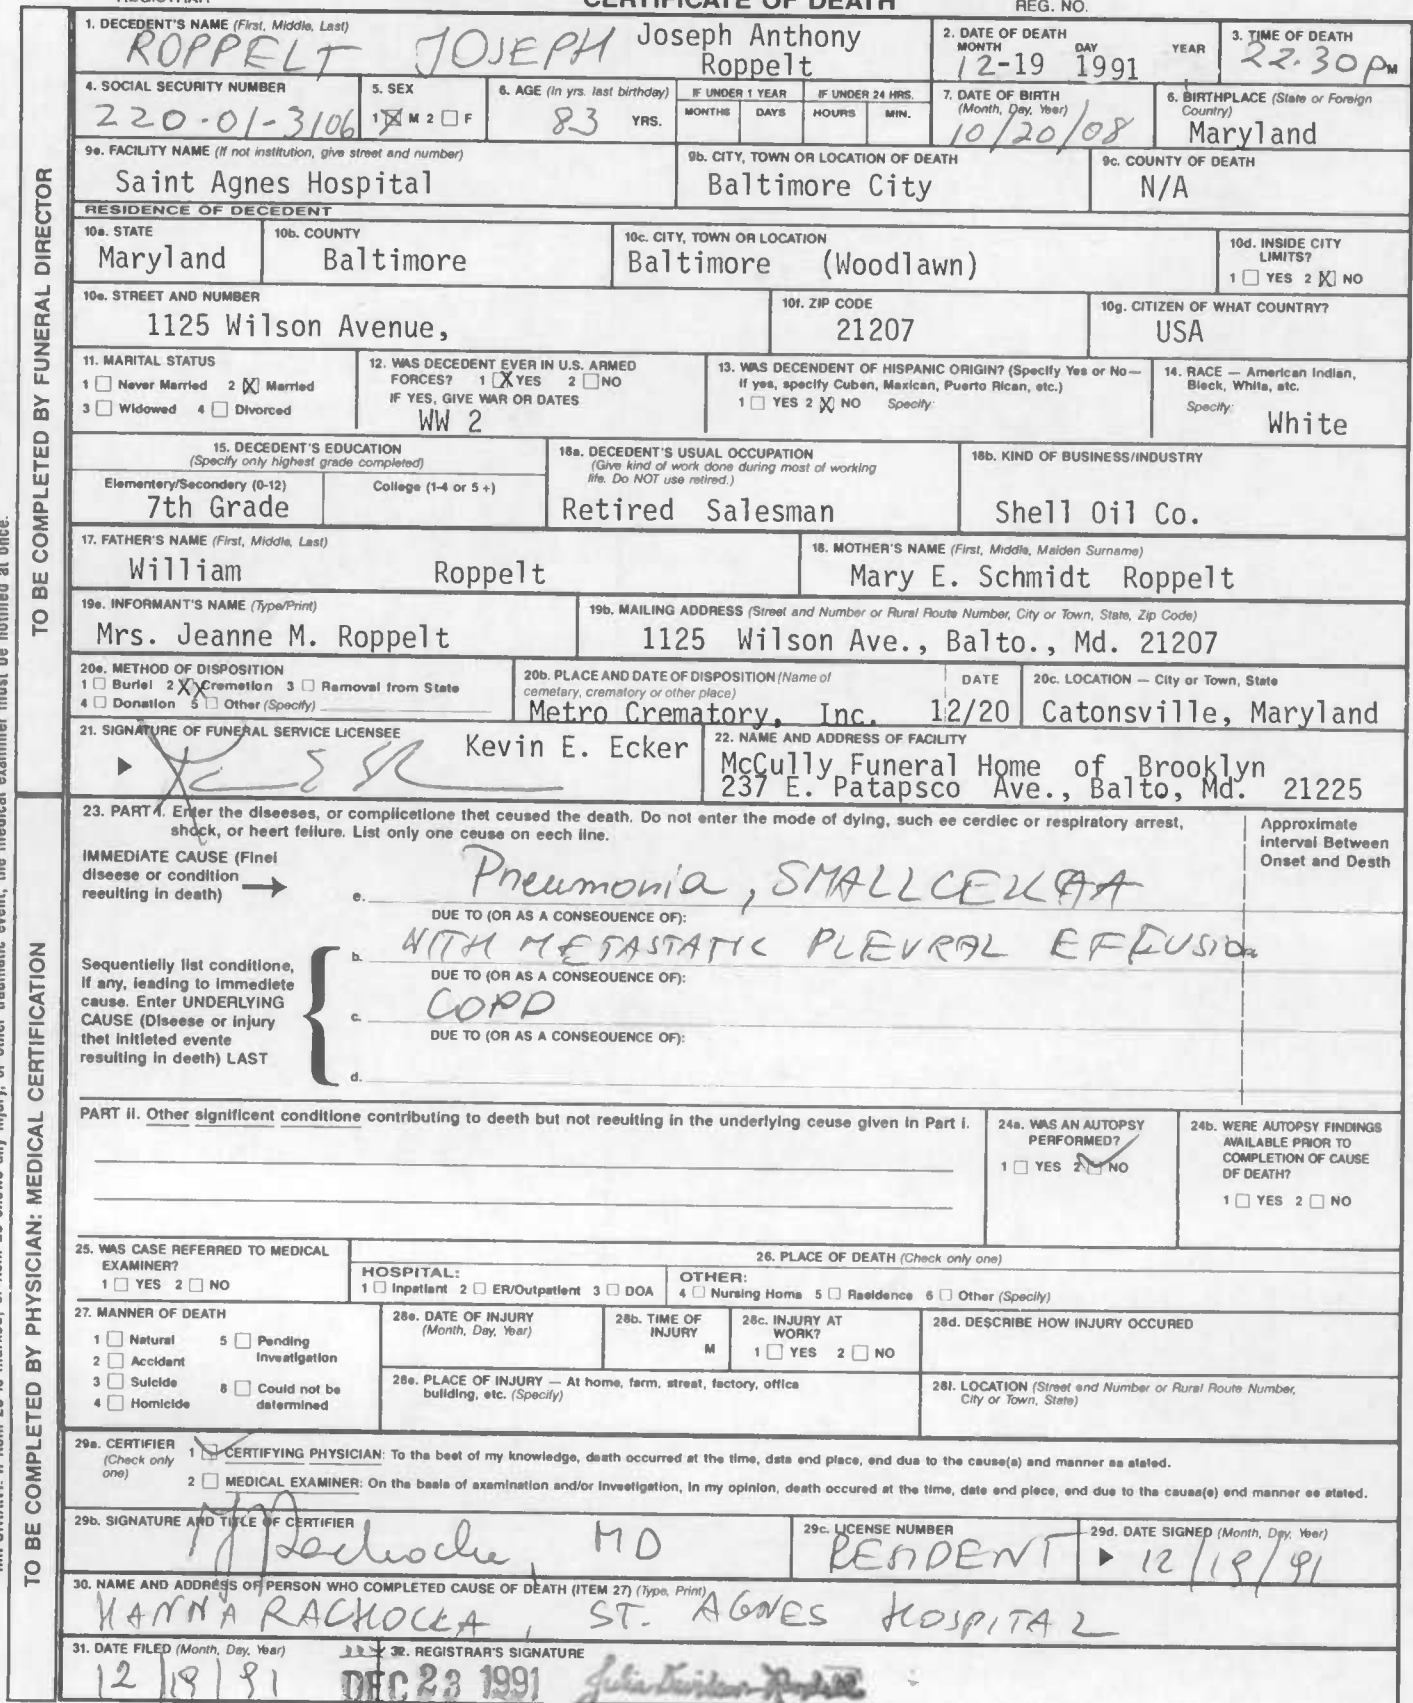 CERTIFICATE OF DEATH
REG. NO.
1. DECEDENT'S NAME (First, Middle, Last)
ROPPELT JOSEPH Joseph Anthony
Roppelt
2. DATE OF DEATH
MONTH DAY YEAR
12-19 1991
3. TIME OF DEATH
22.30 PM
4. SOCIAL SECURITY NUMBER
220-01-3106
5. SEX
1 ☒ M 2 ☐ F
6. AGE (In yrs. last birthday)
83 YRS.
IF UNDER 1 YEAR
MONTHS DAYS
IF UNDER 24 HRS.
HOURS MIN.
7. DATE OF BIRTH
(Month, Day, Year)
10/20/08
6. BIRTHPLACE (State or Foreign
Country)
Maryland
9a. FACILITY NAME (If not institution, give street and number)
Saint Agnes Hospital
9b. CITY, TOWN OR LOCATION OF DEATH
Baltimore City
9c. COUNTY OF DEATH
N/A
RESIDENCE OF DECEDENT
10a. STATE
Maryland
10b. COUNTY
Baltimore
10c. CITY, TOWN OR LOCATION
Baltimore (Woodlawn)
10d. INSIDE CITY
LIMITS?
1 ☐ YES 2 ☒ NO
10e. STREET AND NUMBER
1125 Wilson Avenue,
10f. ZIP CODE
21207
10g. CITIZEN OF WHAT COUNTRY?
USA
11. MARITAL STATUS
1 ☐ Never Married 2 ☒ Married
3 ☐ Widowed 4 ☐ Divorced
12. WAS DECEDENT EVER IN U.S. ARMED
FORCES? 1 ☒ YES 2 ☐ NO
IF YES, GIVE WAR OR DATES
WW 2
13. WAS DECENDENT OF HISPANIC ORIGIN? (Specify Yes or No—
If yes, specify Cuban, Mexican, Puerto Rican, etc.)
1 ☐ YES 2 ☒ NO Specify:
14. RACE — American Indian,
Black, White, etc.
Specify:
White
15. DECEDENT'S EDUCATION
(Specify only highest grade completed)
Elementery/Secondery (0-12)
7th Grade
College (1-4 or 5+)
16a. DECEDENT'S USUAL OCCUPATION
(Give kind of work done during most of working
life. Do NOT use retired.)
Retired Salesman
16b. KIND OF BUSINESS/INDUSTRY
Shell Oil Co.
17. FATHER'S NAME (First, Middle, Last)
William Roppelt
18. MOTHER'S NAME (First, Middle, Maiden Surname)
Mary E. Schmidt Roppelt
19a. INFORMANT'S NAME (Type/Print)
Mrs. Jeanne M. Roppelt
19b. MAILING ADDRESS (Street and Number or Rural Route Number, City or Town, State, Zip Code)
1125 Wilson Ave., Balto., Md. 21207
20a. METHOD OF DISPOSITION
1 ☐ Buriel 2 ☒ Cremetion 3 ☐ Removal from State
4 ☐ Donation 5 ☐ Other (Specify)
20b. PLACE AND DATE OF DISPOSITION (Name of
cemetary, crematory or other place)
Metro Crematory, Inc.
DATE
12/20
20c. LOCATION — City or Town, State
Catonsville, Maryland
21. SIGNATURE OF FUNERAL SERVICE LICENSEE
Kevin E. Ecker
22. NAME AND ADDRESS OF FACILITY
McCully Funeral Home of Brooklyn
237 E. Patapsco Ave., Balto, Md. 21225
23. PART I. Enter the diseeses, or complicetione thet ceused the death. Do not enter the mode of dying, such ee cerdiec or respiratory arrest,
shock, or heert feilure. List only one ceuse on eech iine.
Approximate
Interval Between
Onset and Death
IMMEDIATE CAUSE (Finel
diseese or condition
reeulting in death) →
e. Pneumonia, SMALLCELL
DUE TO (OR AS A CONSEOUENCE OF):
b. WITH METASTATIC PLEVRAL EFFUSION
DUE TO (OR AS A CONSEOUENCE OF):
c. COPD
DUE TO (OR AS A CONSEOUENCE OF):
d.
Sequentielly list conditione,
if any, leading to immediete
cause. Enter UNDERLYING
CAUSE (Diseese or injury
thet initieted evente
resulting in deeth) LAST
PART II. Other significent conditione contributing to deeth but not reeulting in the underlying ceuse given in Part I.
24a. WAS AN AUTOPSY
PERFORMED?
1 ☐ YES 2 ☑ NO
24b. WERE AUTOPSY FINDINGS
AVAILABLE PRIOR TO
COMPLETION OF CAUSE
OF DEATH?
1 ☐ YES 2 ☐ NO
25. WAS CASE REFERRED TO MEDICAL
EXAMINER?
1 ☐ YES 2 ☐ NO
26. PLACE OF DEATH (Check only one)
HOSPITAL:
1 ☐ Inpatient 2 ☐ ER/Outpatient 3 ☐ DOA
OTHER:
4 ☐ Nursing Home 5 ☐ Raeidence 6 ☐ Other (Specify)
27. MANNER OF DEATH
1 ☐ Natural 5 ☐ Pending
Investigation
2 ☐ Accident
3 ☐ Suicide 6 ☐ Could not be
determined
4 ☐ Homicide
28a. DATE OF INJURY
(Month, Day, Year)
28b. TIME OF
INJURY
M
28c. INJURY AT
WORK?
1 ☐ YES 2 ☐ NO
28d. DESCRIBE HOW INJURY OCCURED
28e. PLACE OF INJURY — At home, farm, street, factory, office
building, etc. (Specify)
28f. LOCATION (Street and Number or Rural Route Number,
City or Town, State)
29a. CERTIFIER
(Check only
one)
1 ☑ CERTIFYING PHYSICIAN: To the beet of my knowledge, death occurred at the time, data end place, end due to the cause(a) and manner as stated.
2 ☐ MEDICAL EXAMINER: On the basis of examination and/or investigation, in my opinion, death occured at the time, date end place, end due to the causa(e) end manner ee atated.
29b. SIGNATURE AND TITLE OF CERTIFIER
MD
29c. LICENSE NUMBER
RESIDENT
29d. DATE SIGNED (Month, Day, Year)
12/19/91
30. NAME AND ADDRESS OF PERSON WHO COMPLETED CAUSE OF DEATH (ITEM 27) (Type, Print)
HANNA RACHOCKA, ST. AGNES HOSPITAL
31. DATE FILED (Month, Day, Year)
12/19/91
32. REGISTRAR'S SIGNATURE
DEC 23 1991
TO BE COMPLETED BY FUNERAL DIRECTOR
TO BE COMPLETED BY PHYSICIAN: MEDICAL CERTIFICATION